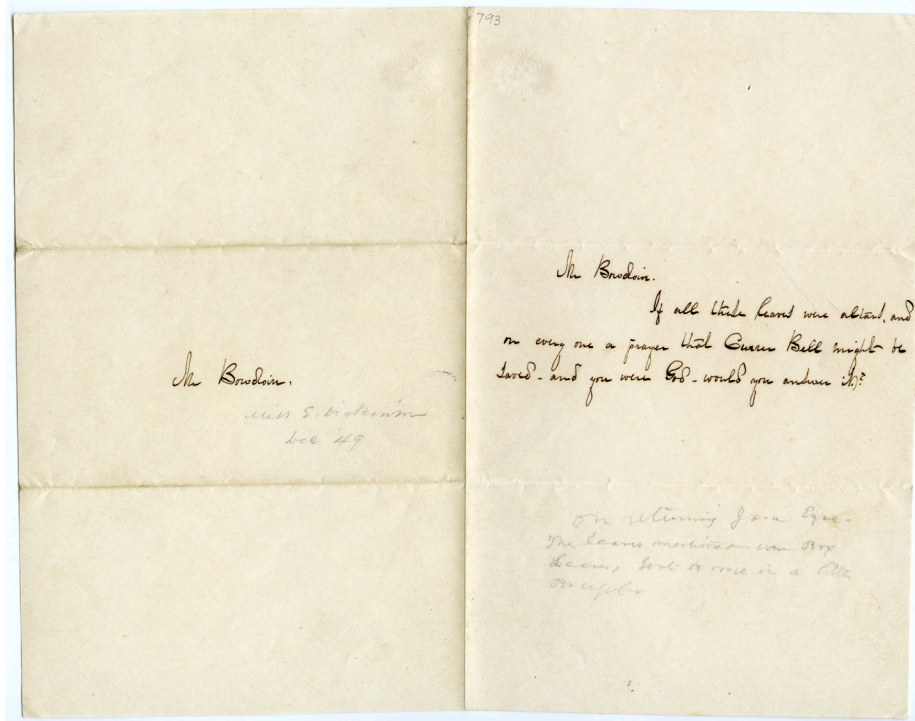 793
Mr Bowdoin.
Miss E. Dickinson
Dec '49
Mr Bowdoin.
If all these leaves were altars, and
on every one a prayer that Currer Bell might be
saved - and you were God - would you answer it?
On returning Jane Eyre.
The leaves mentioned were Box
Leaves, sent to me in a little
Bouquet